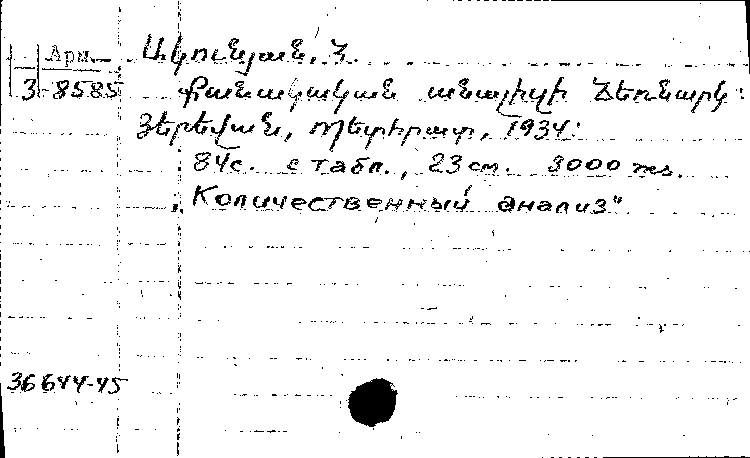 Ակունյան, Հ.
Арм.
3-8585
Քանակական անալիզի Ձեռնարկ:
Յերեվան, Պետհրատ, 1934:
84с. с табл., 23 см. 3000 экз.
„Количественный анализ"
36644-45